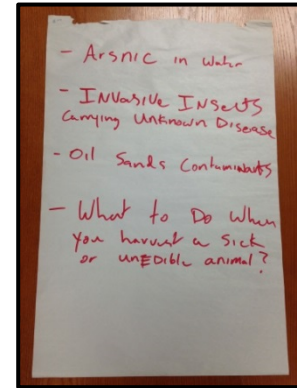 - Arsnic in Water
- INVasive INsects
Carrying Unknown Disease
- Oil Sands Contaminants
- What to Do When
you harvest a Sick
or unEDible animal?